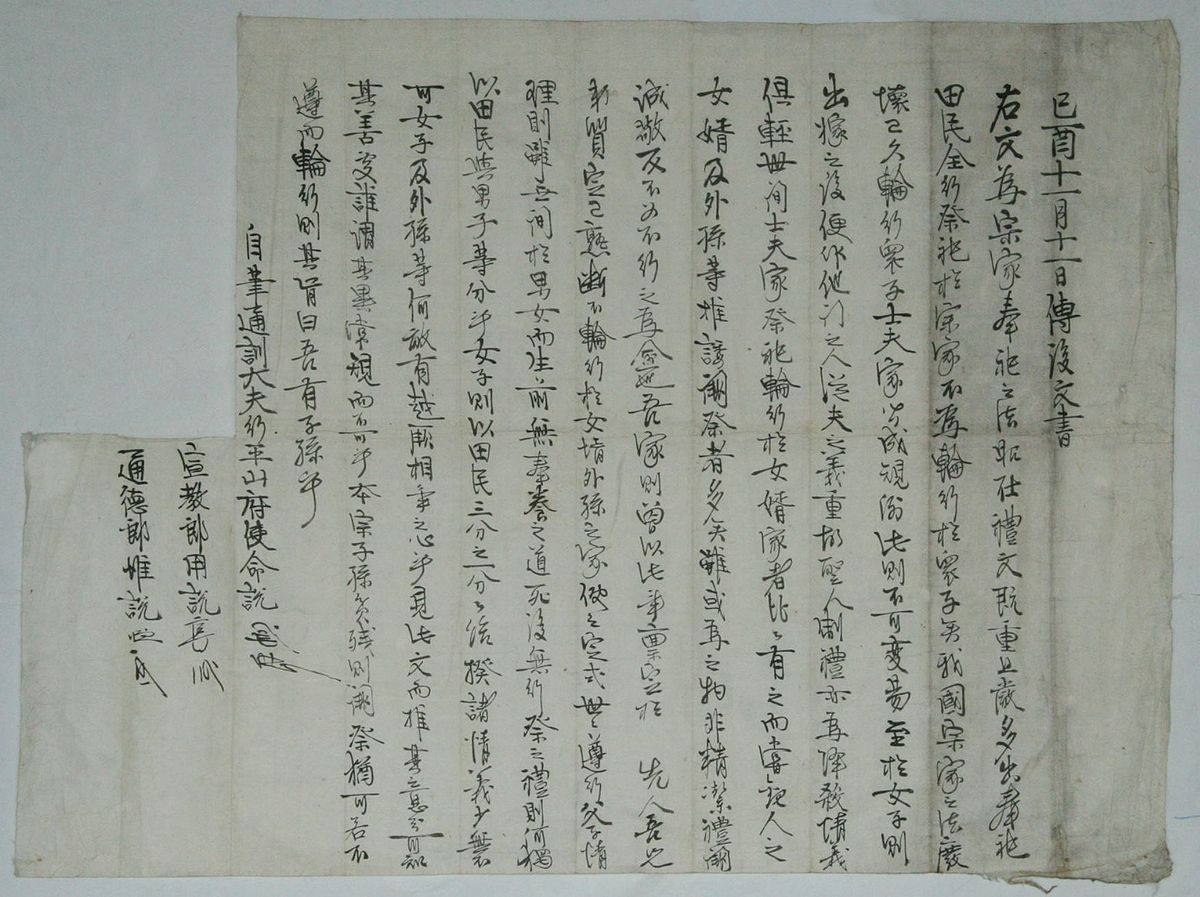 己酉十一月十一日傳後文書
右文爲宗家奉祀之法昭在禮文旣重且嚴多出奉祀
田民全行祭祀於宗家不爲輪行於衆子矣我國宗家之法廢
壞已久輪行衆子士夫家皆成規例此則不可變易至於女子則
出嫁之後便作他門之人從夫之義重故聖人制禮亦爲降殺情義
俱輕世間士夫家祭祀輪行於女婿家者比〻有之而嘗觀人之
女婿及外孫等推諉闕祭者多矣雖或爲之物非精潔禮闕
誠敬反不如不行之爲愈也吾家則曾以此事稟定於 先人吾兄
弟質定已懸斷不輪行於女婿外孫之家使之定式世〻遵行父子情
理則雖云間於男女而生前無奉養之道死後無行祭之禮則何獨
以田民與男子等分乎女子則以田民三分之一分〻給揆諸情義少無
可女子及外孫等何敢有越厥相爭之心乎見此文而推其意則可知
其善變誰謂其異常規而不可乎本宗子孫貧殘則闕祭猶可若不
遵而輪行則其肯曰吾有子孫乎
自筆通訓大夫行平山府使命說
宣敎郎用說
通德郎惟說